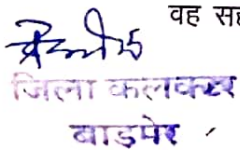 वह
जिला कलक्टर
बाडमेर